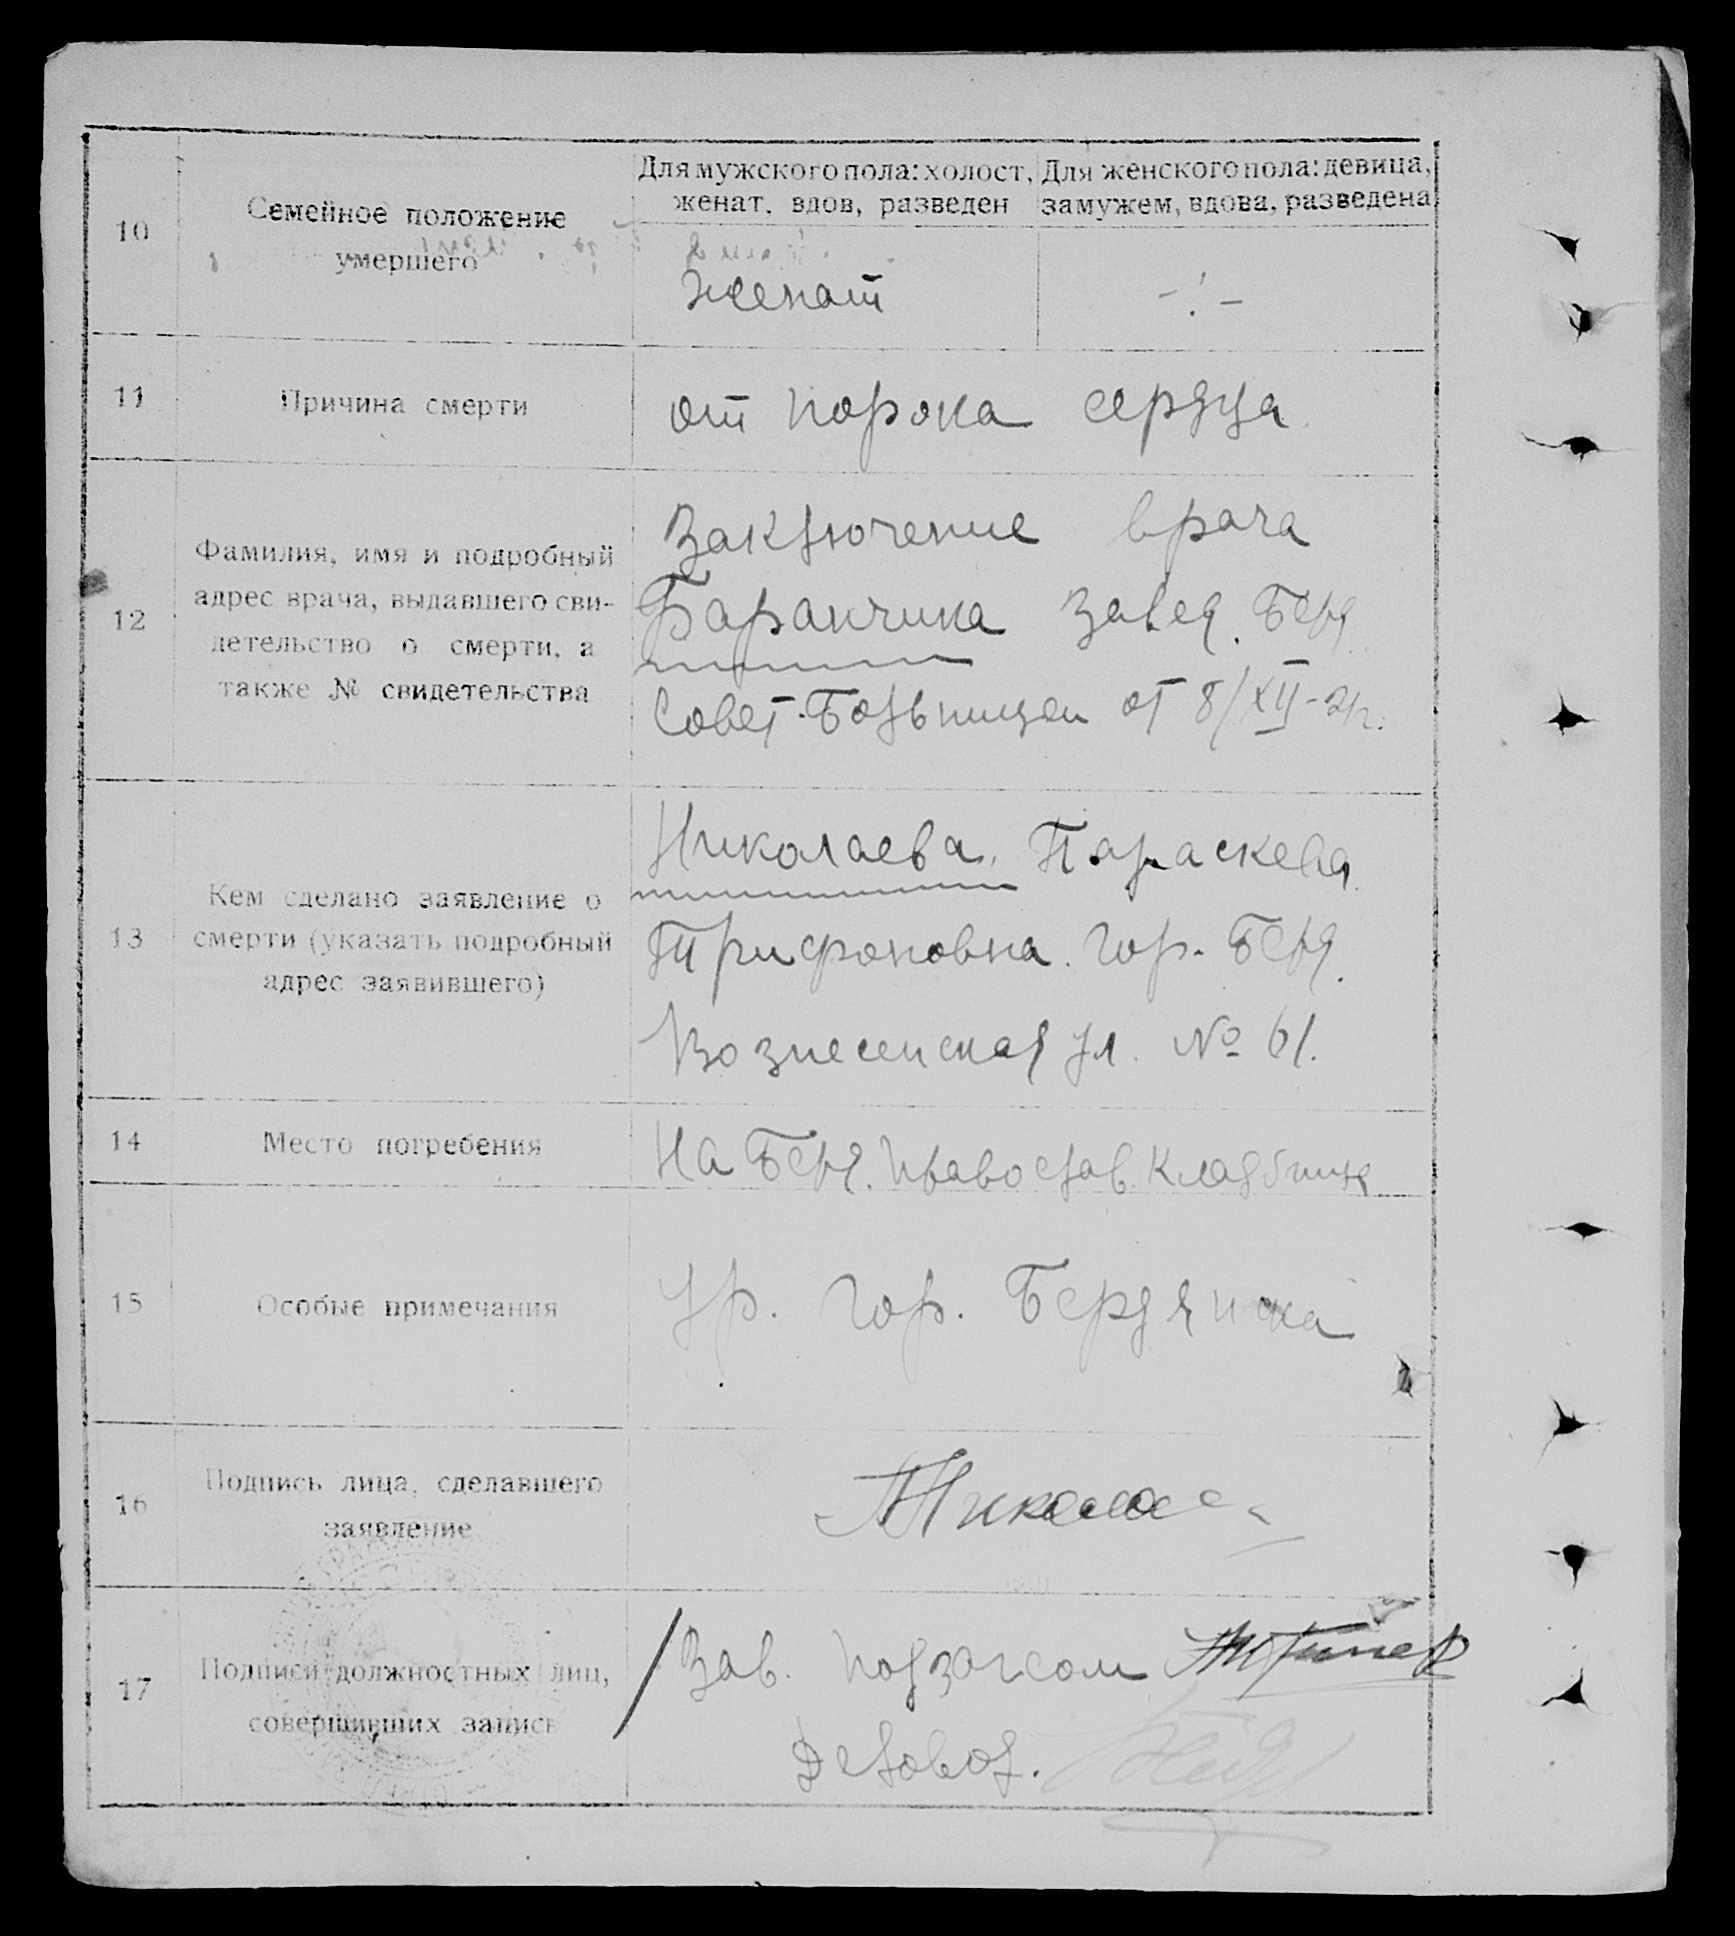 Для мужского пола: холост, женат, вдов, разведен
Для женского пола: девица, замужем, вдова, разведена
10
Семейное положение
умершего
женат
-!-
11
Причина смерти
от порока сердца
12
Фамилия, имя и подробный
адрес врача, выдавшего сви-
детельство о смерти, а
также № свидетельства
Заключение врача
Баранчика Завед. Берд.
Совет. Больницей от 8/XII-2г.
13
Кем сделано заявление о
смерти (указать подробный
адрес заявившего)
Николаева Параскева
Трифоновна. гор. Берд.
Вознесенская ул. № 61.
14
Место погребения
На Берд. Православ. Кладбище
15
Особые примечания
Гр. гор. Бердянска
16
Подпись лица, сделавшего
заявление
17
Подписи должностных лиц,
совершивших запись
Зав. подзагсом
Деловод.